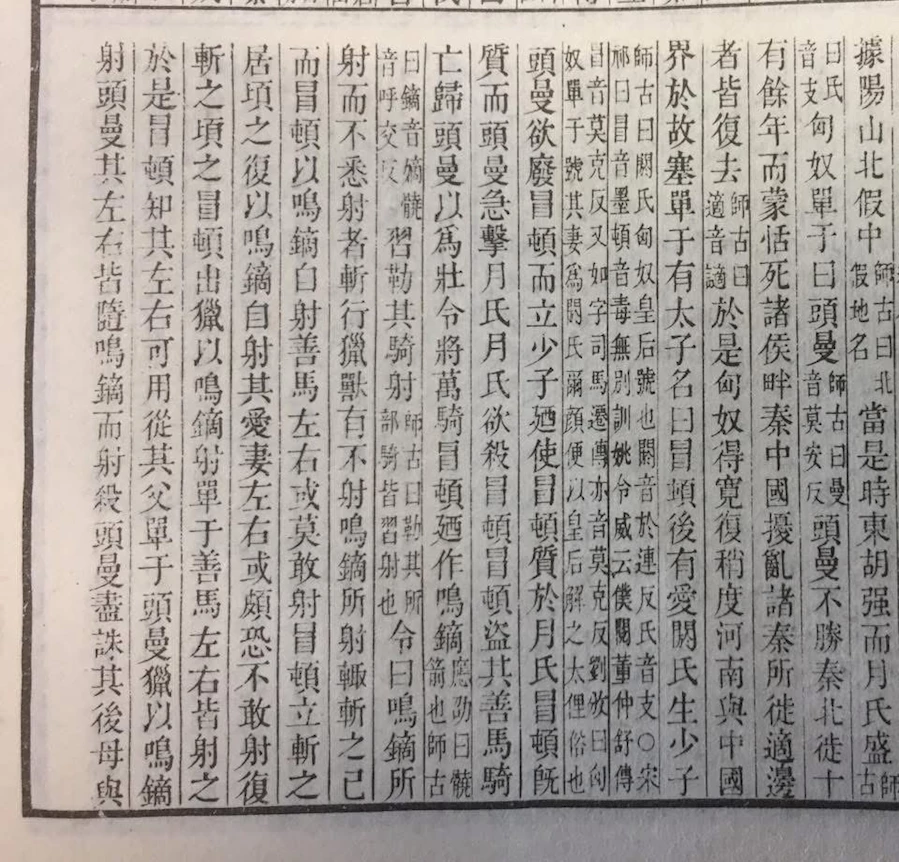 據陽山北假中師古曰北假地名當是時東胡强而月氏盛師古
曰氏音支匈奴單于曰頭曼師古曰曼音莫安反頭曼不勝秦北徙十
有餘年而蒙恬死諸侯畔秦中國擾亂諸秦所徙適邊
者皆復去師古曰適音謫於是匈奴得寬復稍度河南與中國
界於故塞單于有太子名曰冒頓後有愛閼氏生少子
師古曰閼氏匈奴皇后號也閼音於連反氏音支○宋
祁曰冒音墨頓音毒無別訓姚令威云僕閱董仲舒傳
冒音莫克反又如字司馬遷傳亦音莫克反劉攽曰匈
奴單于號其妻爲閼氏爾顔便以皇后解之太俚俗也
頭曼欲廢冒頓而立少子廼使冒頓質於月氏冒頓旣
質而頭曼急擊月氏月氏欲殺冒頓冒頓盜其善馬騎
亡歸頭曼以爲壯令將萬騎冒頓廼作鳴鏑應劭曰髐箭也師古
曰鏑音嫡髐音呼交反習勒其騎射師古曰勒其所部騎皆習射也令曰鳴鏑所
射而不悉射者斬行獵獸有不射鳴鏑所射輙斬之已
而冒頓以鳴鏑自射善馬左右或莫敢射冒頓立斬之
居頃之復以鳴鏑自射其愛妻左右或頗恐不敢射復
斬之頃之冒頓出獵以鳴鏑射單于善馬左右皆射之
於是冒頓知其左右可用從其父單于頭曼獵以鳴鏑
射頭曼其左右皆隨鳴鏑而射殺頭曼盡誅其後母與